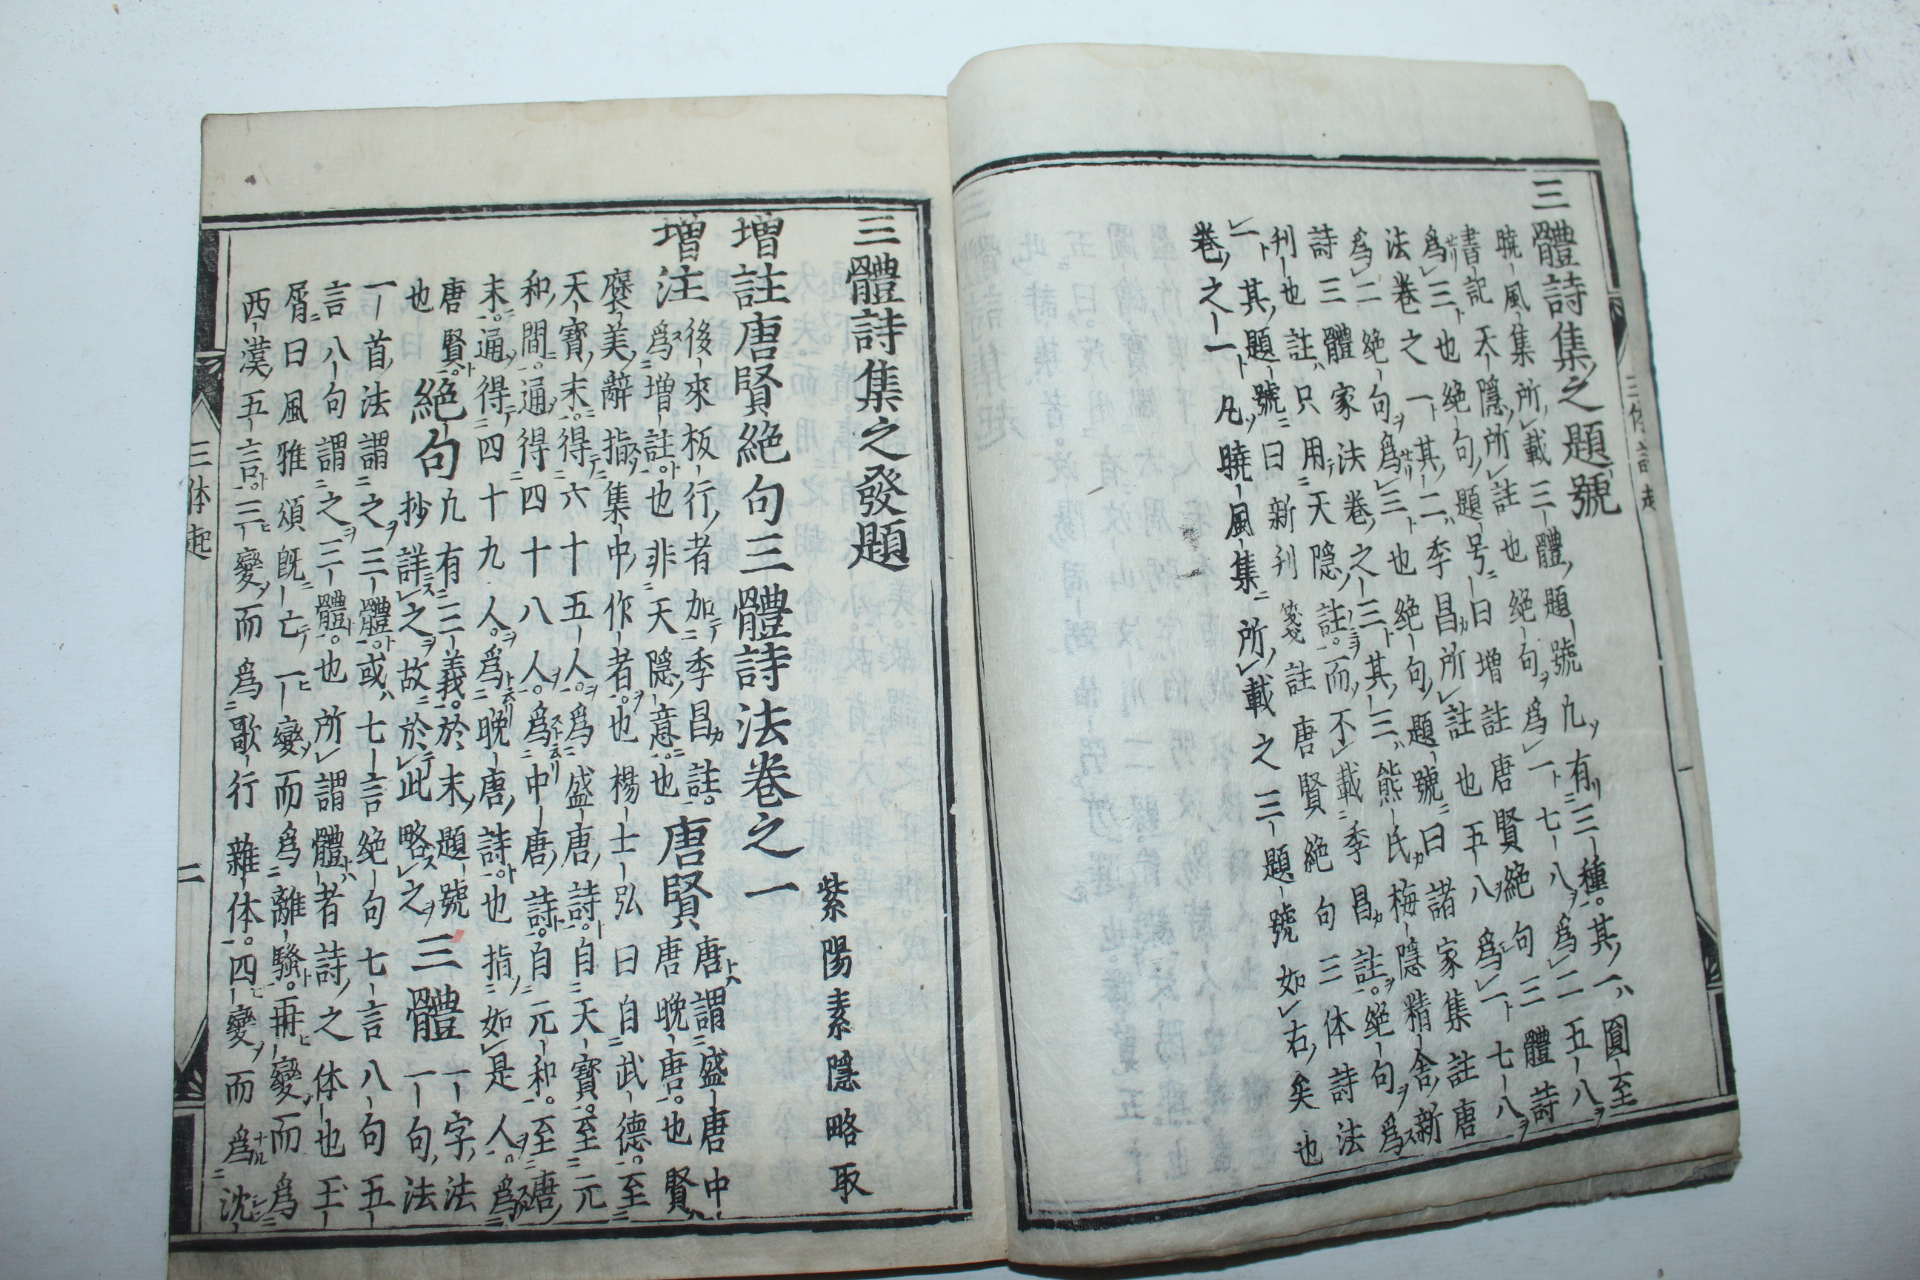 三體詩集之題號
曉風集所載三體題號凡有三種其一圓至
書記天隱所註也絕句爲一七八爲二五八
爲三也絕句題号曰增註唐賢絕句三體詩
法卷之一其二季昌所註也五八爲一七八
爲二絕句爲三也絕句題號曰諸家集註唐
詩三體家法卷之三其三熊氏梅隱精舍新
刊也註只用天隱註而不載季昌註絕句爲
一其題號曰新刊箋註唐賢絕句三体詩法
卷之一凡曉風集所載之三題號如右矣也
三體詩集之發題
紫陽素隱略取
增註唐賢絕句三體詩法卷之一
增注後來板行者加季昌註唐賢唐謂盛唐中
爲增註也非天隱意也唐晚唐也賢
褒美辭指集中作者也楊士弘曰自武德至
天寶末得六十五人爲盛唐詩自天寶至元
和間通得四十八人爲中唐詩自元和至唐
末通得四十九人爲晚唐詩也指如是人爲
唐賢絕句凡有三義於末題號三體一字法
也抄詳之故於此略之一句法
一首法謂之三體或七言絕句七言八句五
言八句謂之三體也所謂體者詩之体也王
屑曰風雅頌既亡一變而爲離騷再變而爲
西漢五言三變而爲歌行雜体四變而爲沈
三体起
二